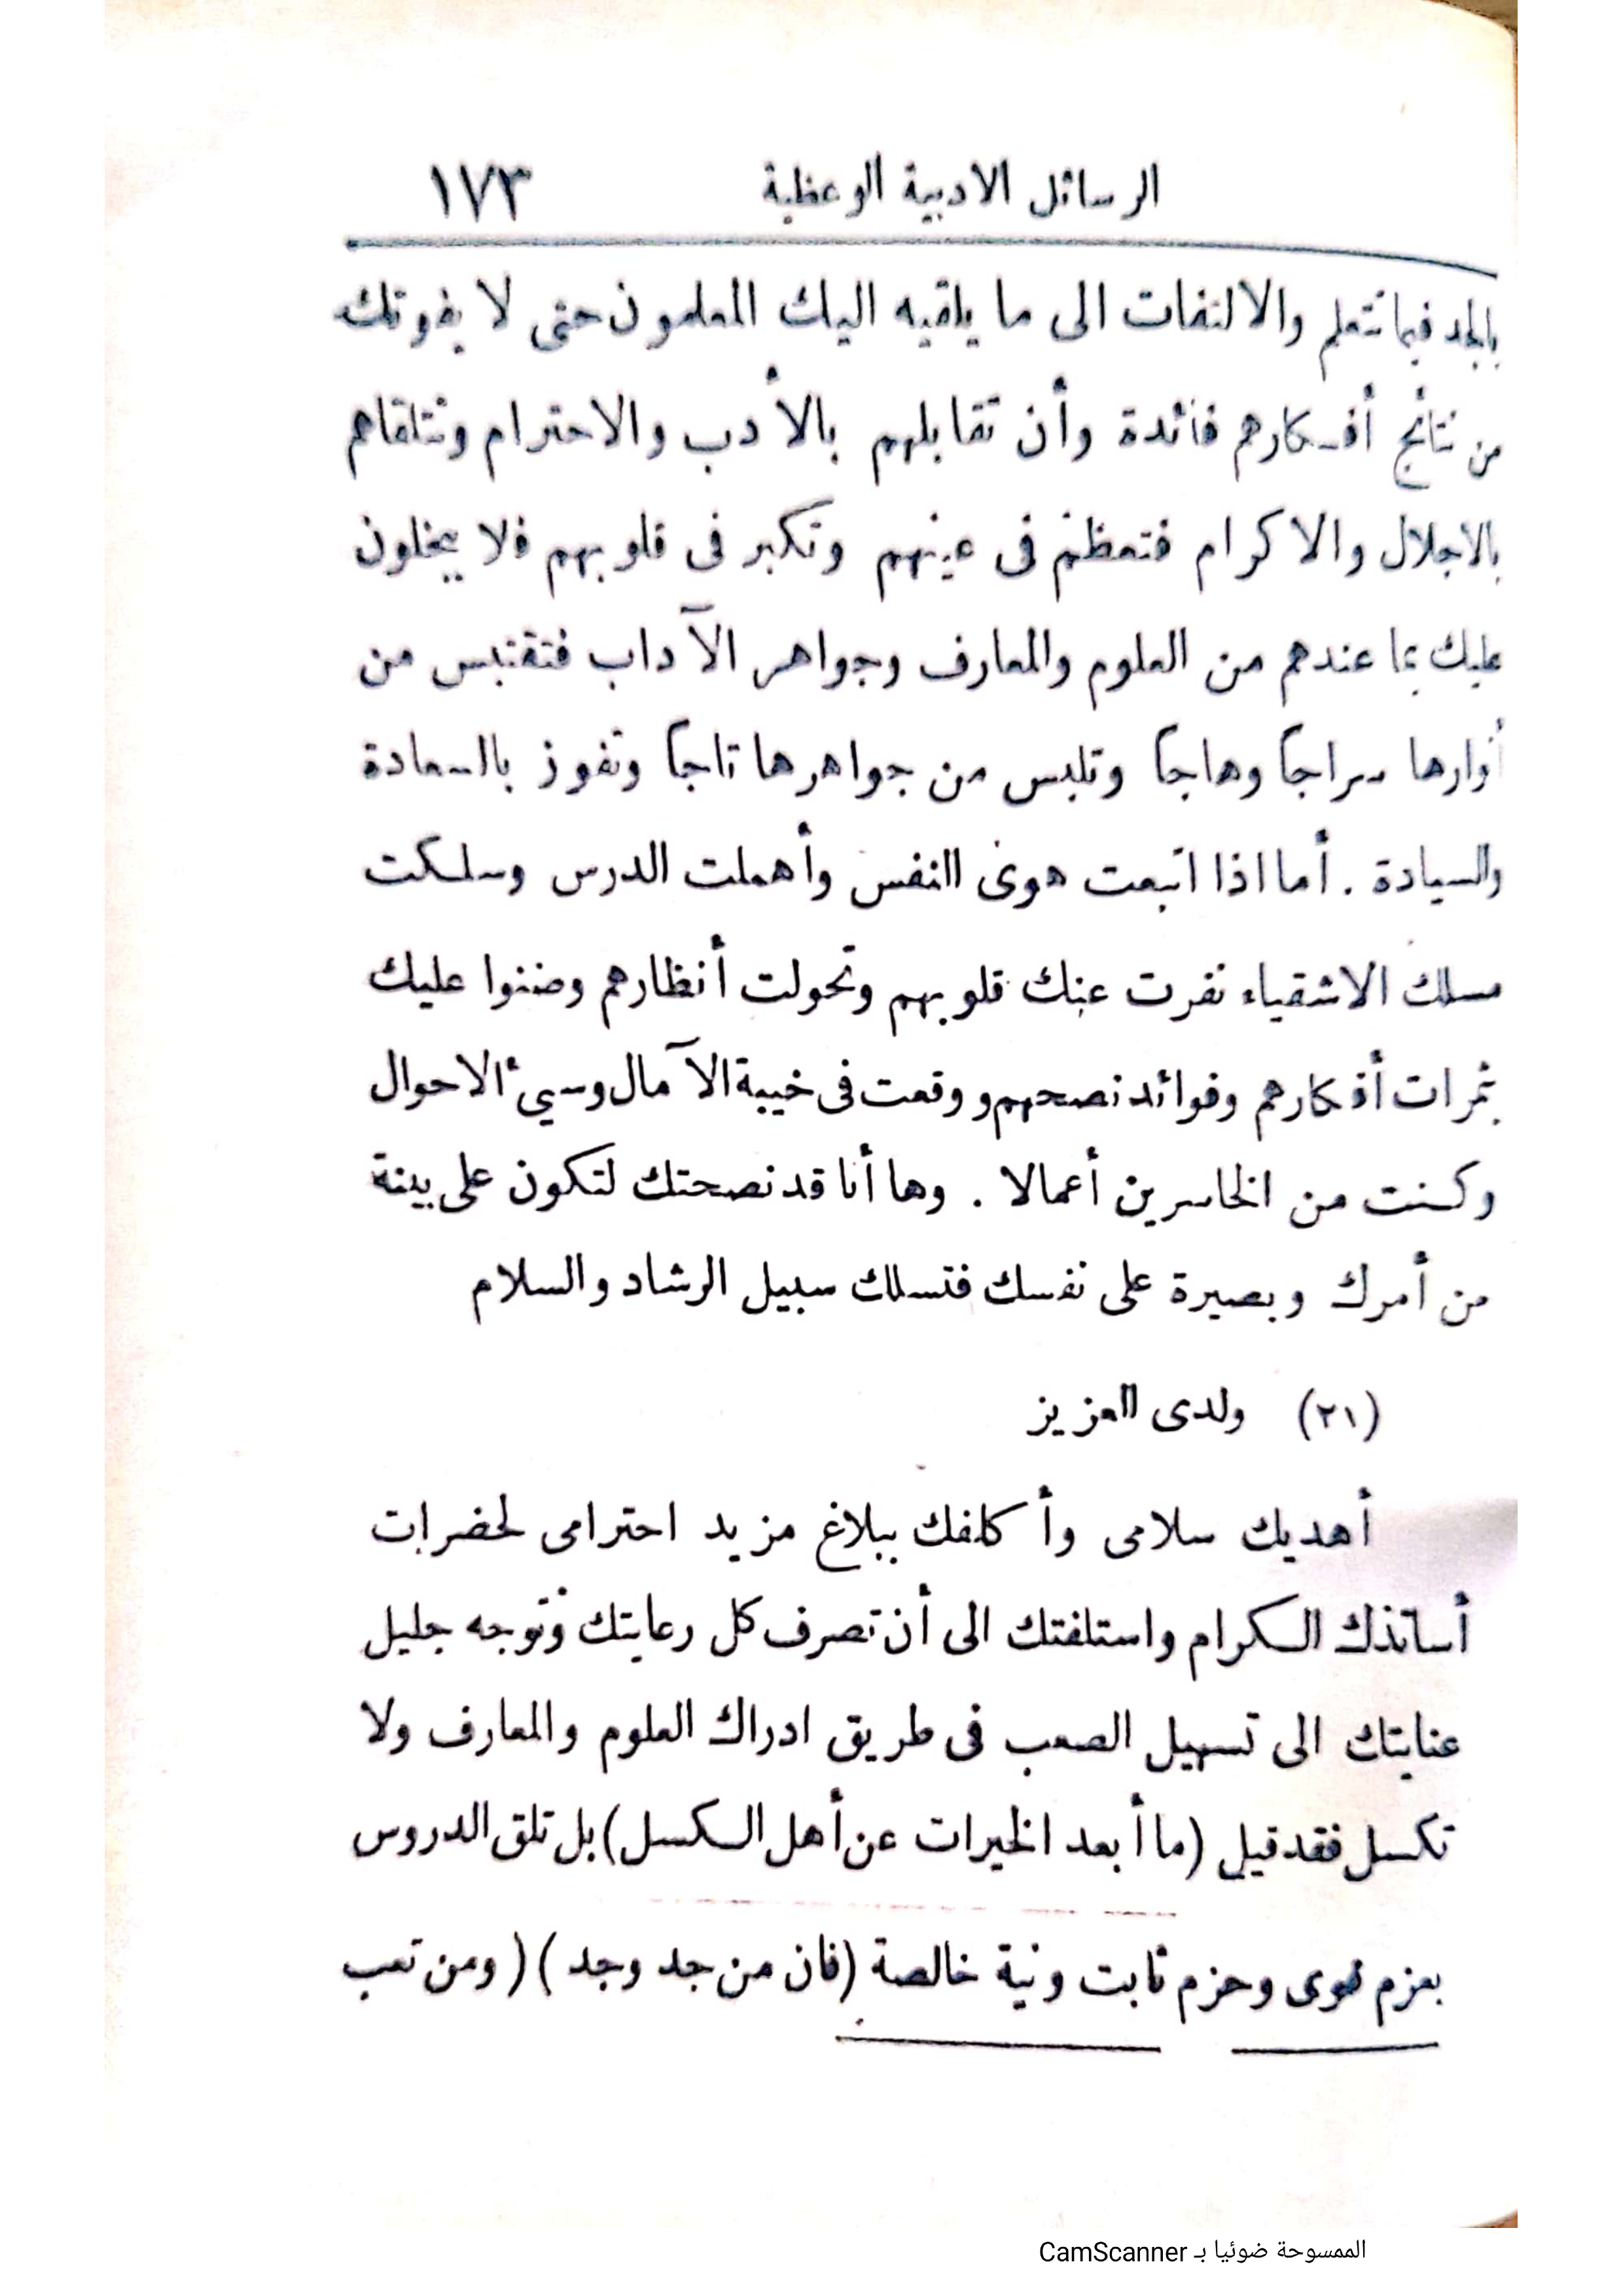 الرسائل الادبية الوعظية ١٧٣
بالجد فيما تتعلم والالتفات الى ما يلقيه اليك المعلمون حتى لا يفوتك
من نتائج أفكارهم فائدة وأن تقابلهم بالأدب والاحترام وتتلقاهم
بالاجلال والاكرام فتعظم فى عينهم وتكبر فى قلوبهم فلا يبخلون
عليك بما عندهم من العلوم والمعارف وجواهر الآداب فتقتبس من
أنوارها سراجاً وهاجاً وتلبس من جواهرها تاجاً وتفوز بالسعادة
والسيادة . أما اذا اتبعت هوى النفس وأهملت الدرس وسلكت
مسلك الاشقياء نفرت عنك قلوبهم وتحولت أنظارهم وضنوا عليك
بثمرات أفكارهم وفوائد نصحهم ووقعت فى خيبة الآمال وسيئ الاحوال
وكنت من الخاسرين أعمالا . وها أنا قد نصحتك لتكون على بينة
من أمرك وبصيرة على نفسك فتسلك سبيل الرشاد والسلام
(٢١) ولدى العزيز
أهديك سلامى وأكلفك ببلاغ مزيد احترامى لحضرات
أساتذك الكرام واستلفتك الى أن تصرف كل رعايتك وتوجه جليل
عنايتك الى تسهيل الصعب فى طريق ادراك العلوم والمعارف ولا
تكسل فقد قيل (ما أبعد الخيرات عن أهل الكسل) بل تلق الدروس
بعزم قوى وحزم ثابت ونية خالصة (فان من جد وجد) (ومن تعب
الممسوحة ضوئيا بـ CamScanner